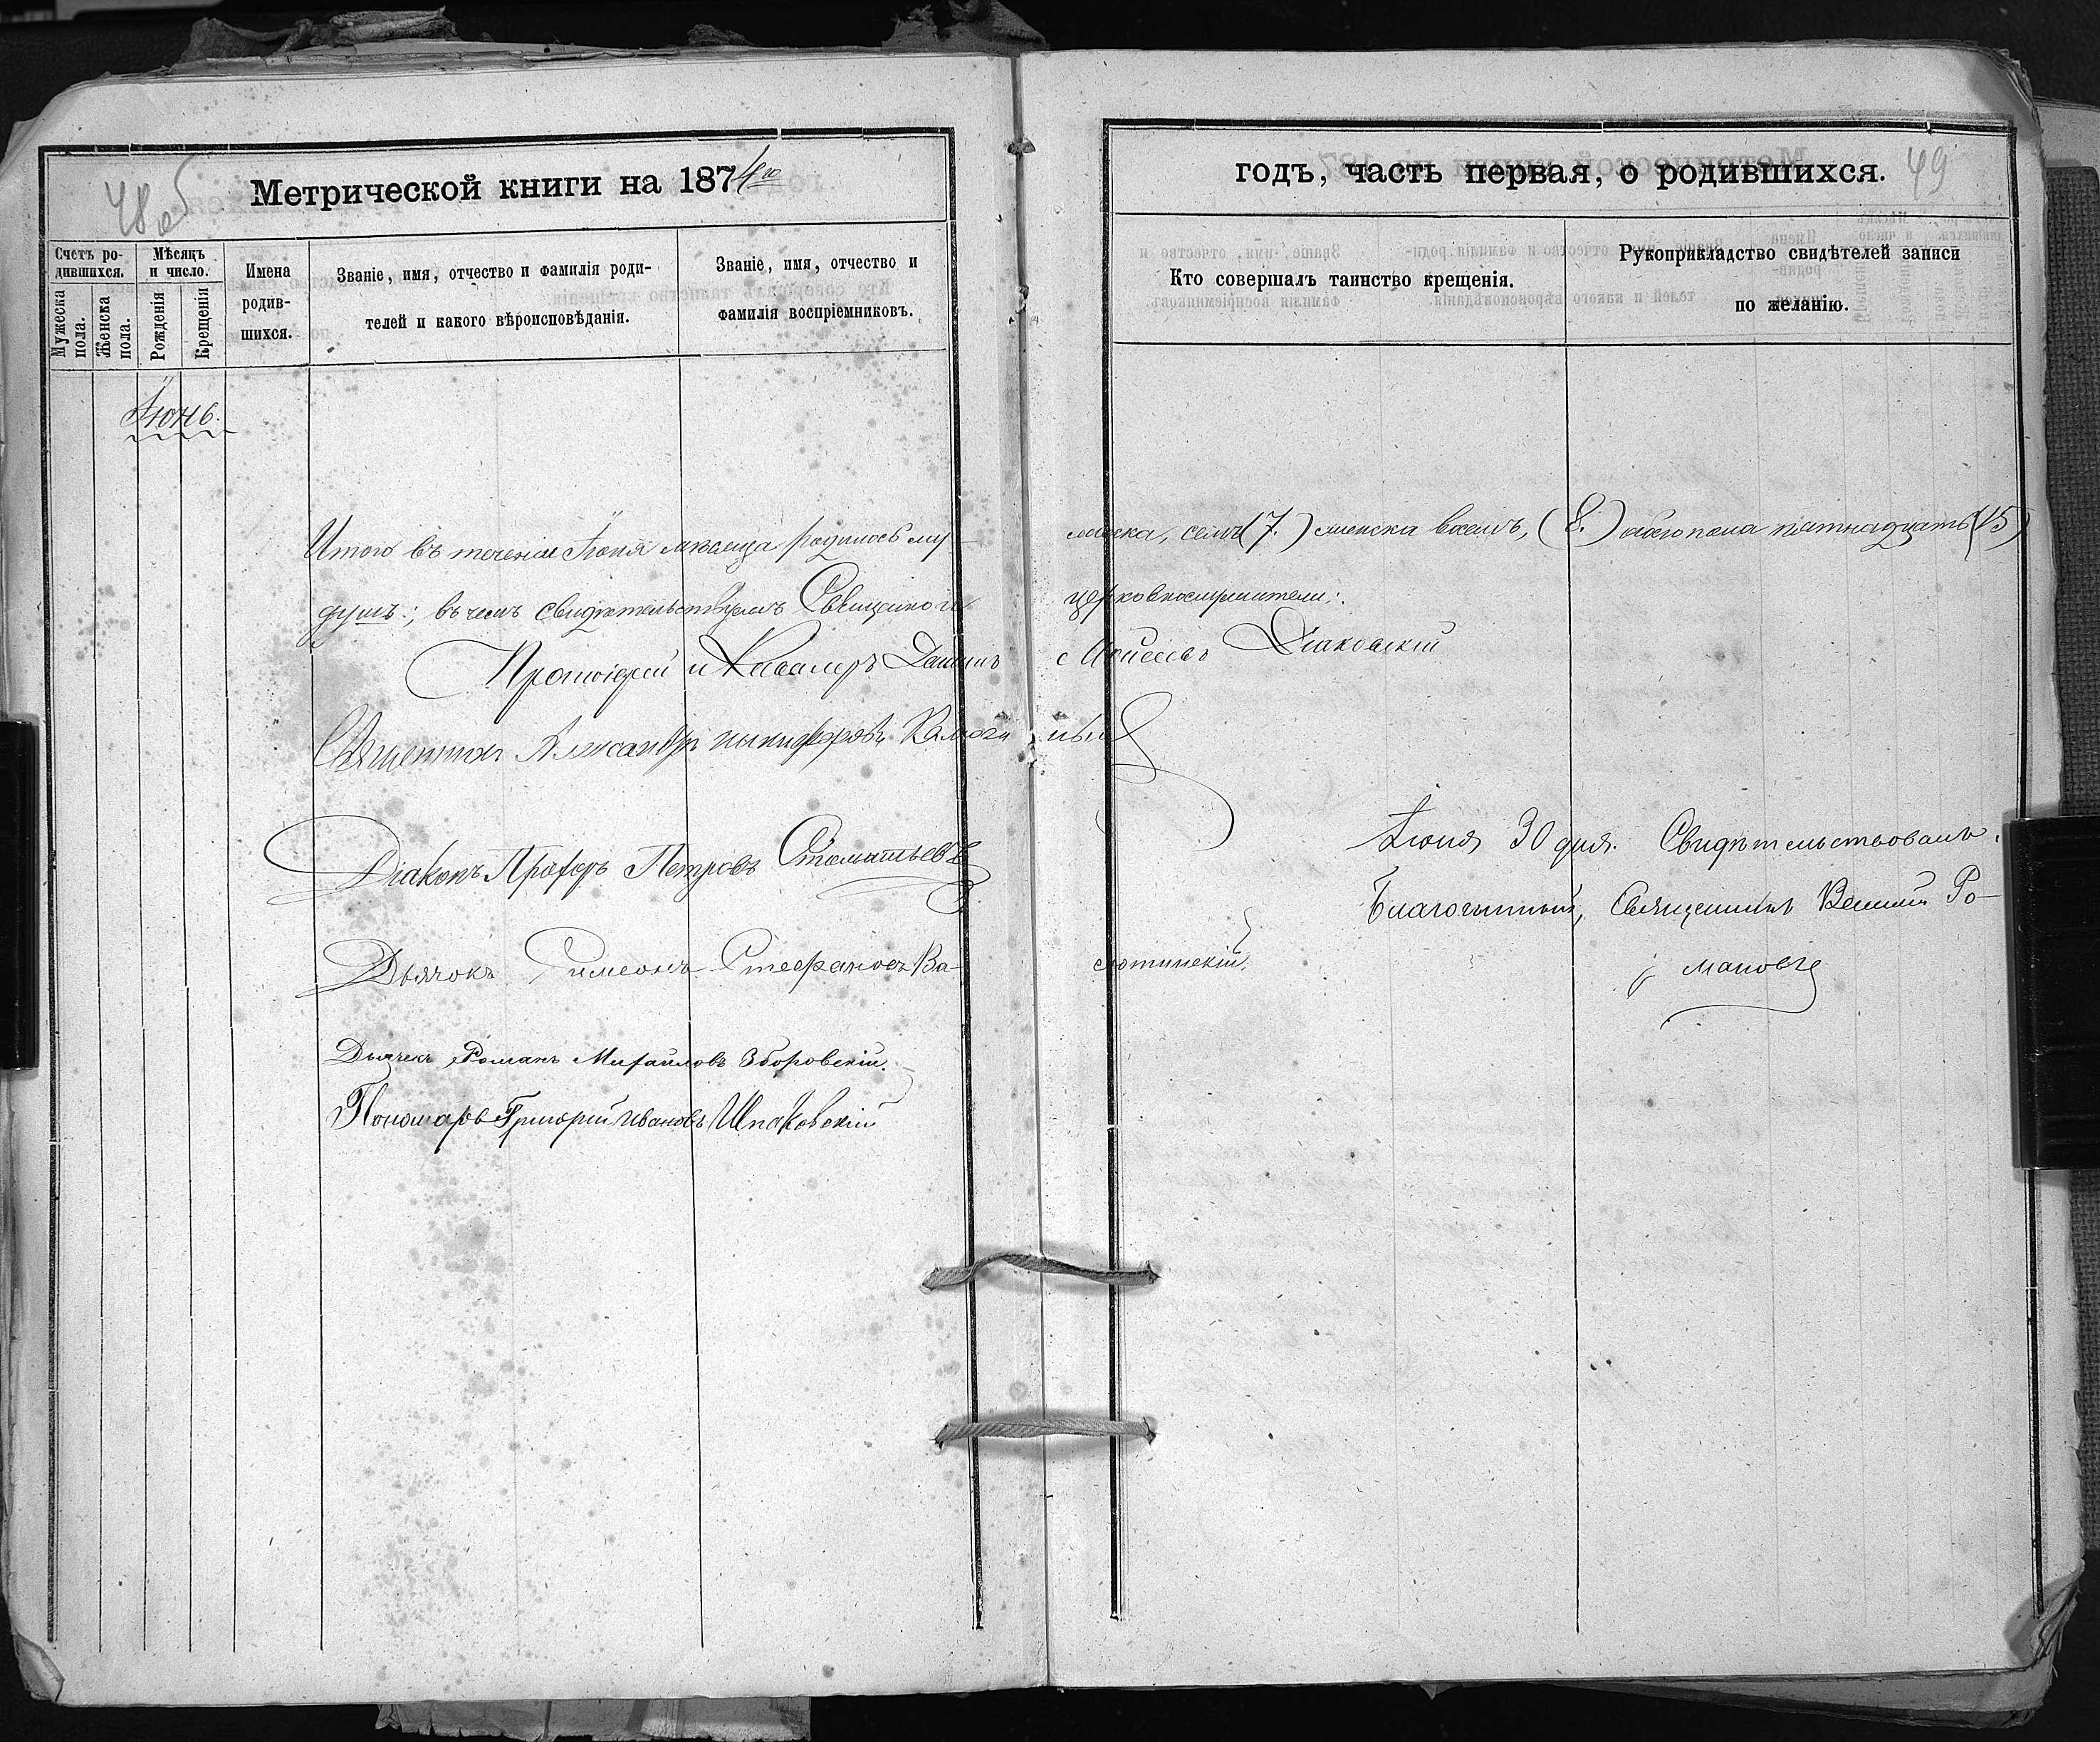 48об
Метрической книги на 1874го
годъ, часть первая, о родившихся.
49
Счетъ ро-
дившихся.
Мужеска
пола.
Женска
пола.
Мѣсяцъ
и число.
Рожденія
Крещенія
Имена
родив-
шихся.
Званіе, имя, отчество и фамилія роди-
телей и какого вѣроисповѣданія.
Званіе, имя, отчество и
фамилія воспріемниковъ.
Кто совершалъ таинство крещенія.
Рукоприкладство свидѣтелей записи
по желанію.
Іюнь.
Итого въ теченіи Іюня мѣсяца родилось му
жеска, семь (7.) женска восемь, (8.) обоего пола пятнадцать (15)
душъ:; въ чемъ свидѣтельствуемъ Священно и
церковнослужители:.
Протоіерей и Кавалеръ Моѵсеевъ
Священникъ Александръ Никифоровъ
Діаконъ Петровъ Стаматьевъ
Іюня 30 дня. Свидѣтельствовалъ.
Благочинный, Священникъ Ро-
мановъ
Дьячокъ Симеонъ Стефановъ Ва-
сютинскій.
Дьячекъ Романъ Михайловъ Зборовскій.
Пономарь Григорій Ивановъ Шпаковскій